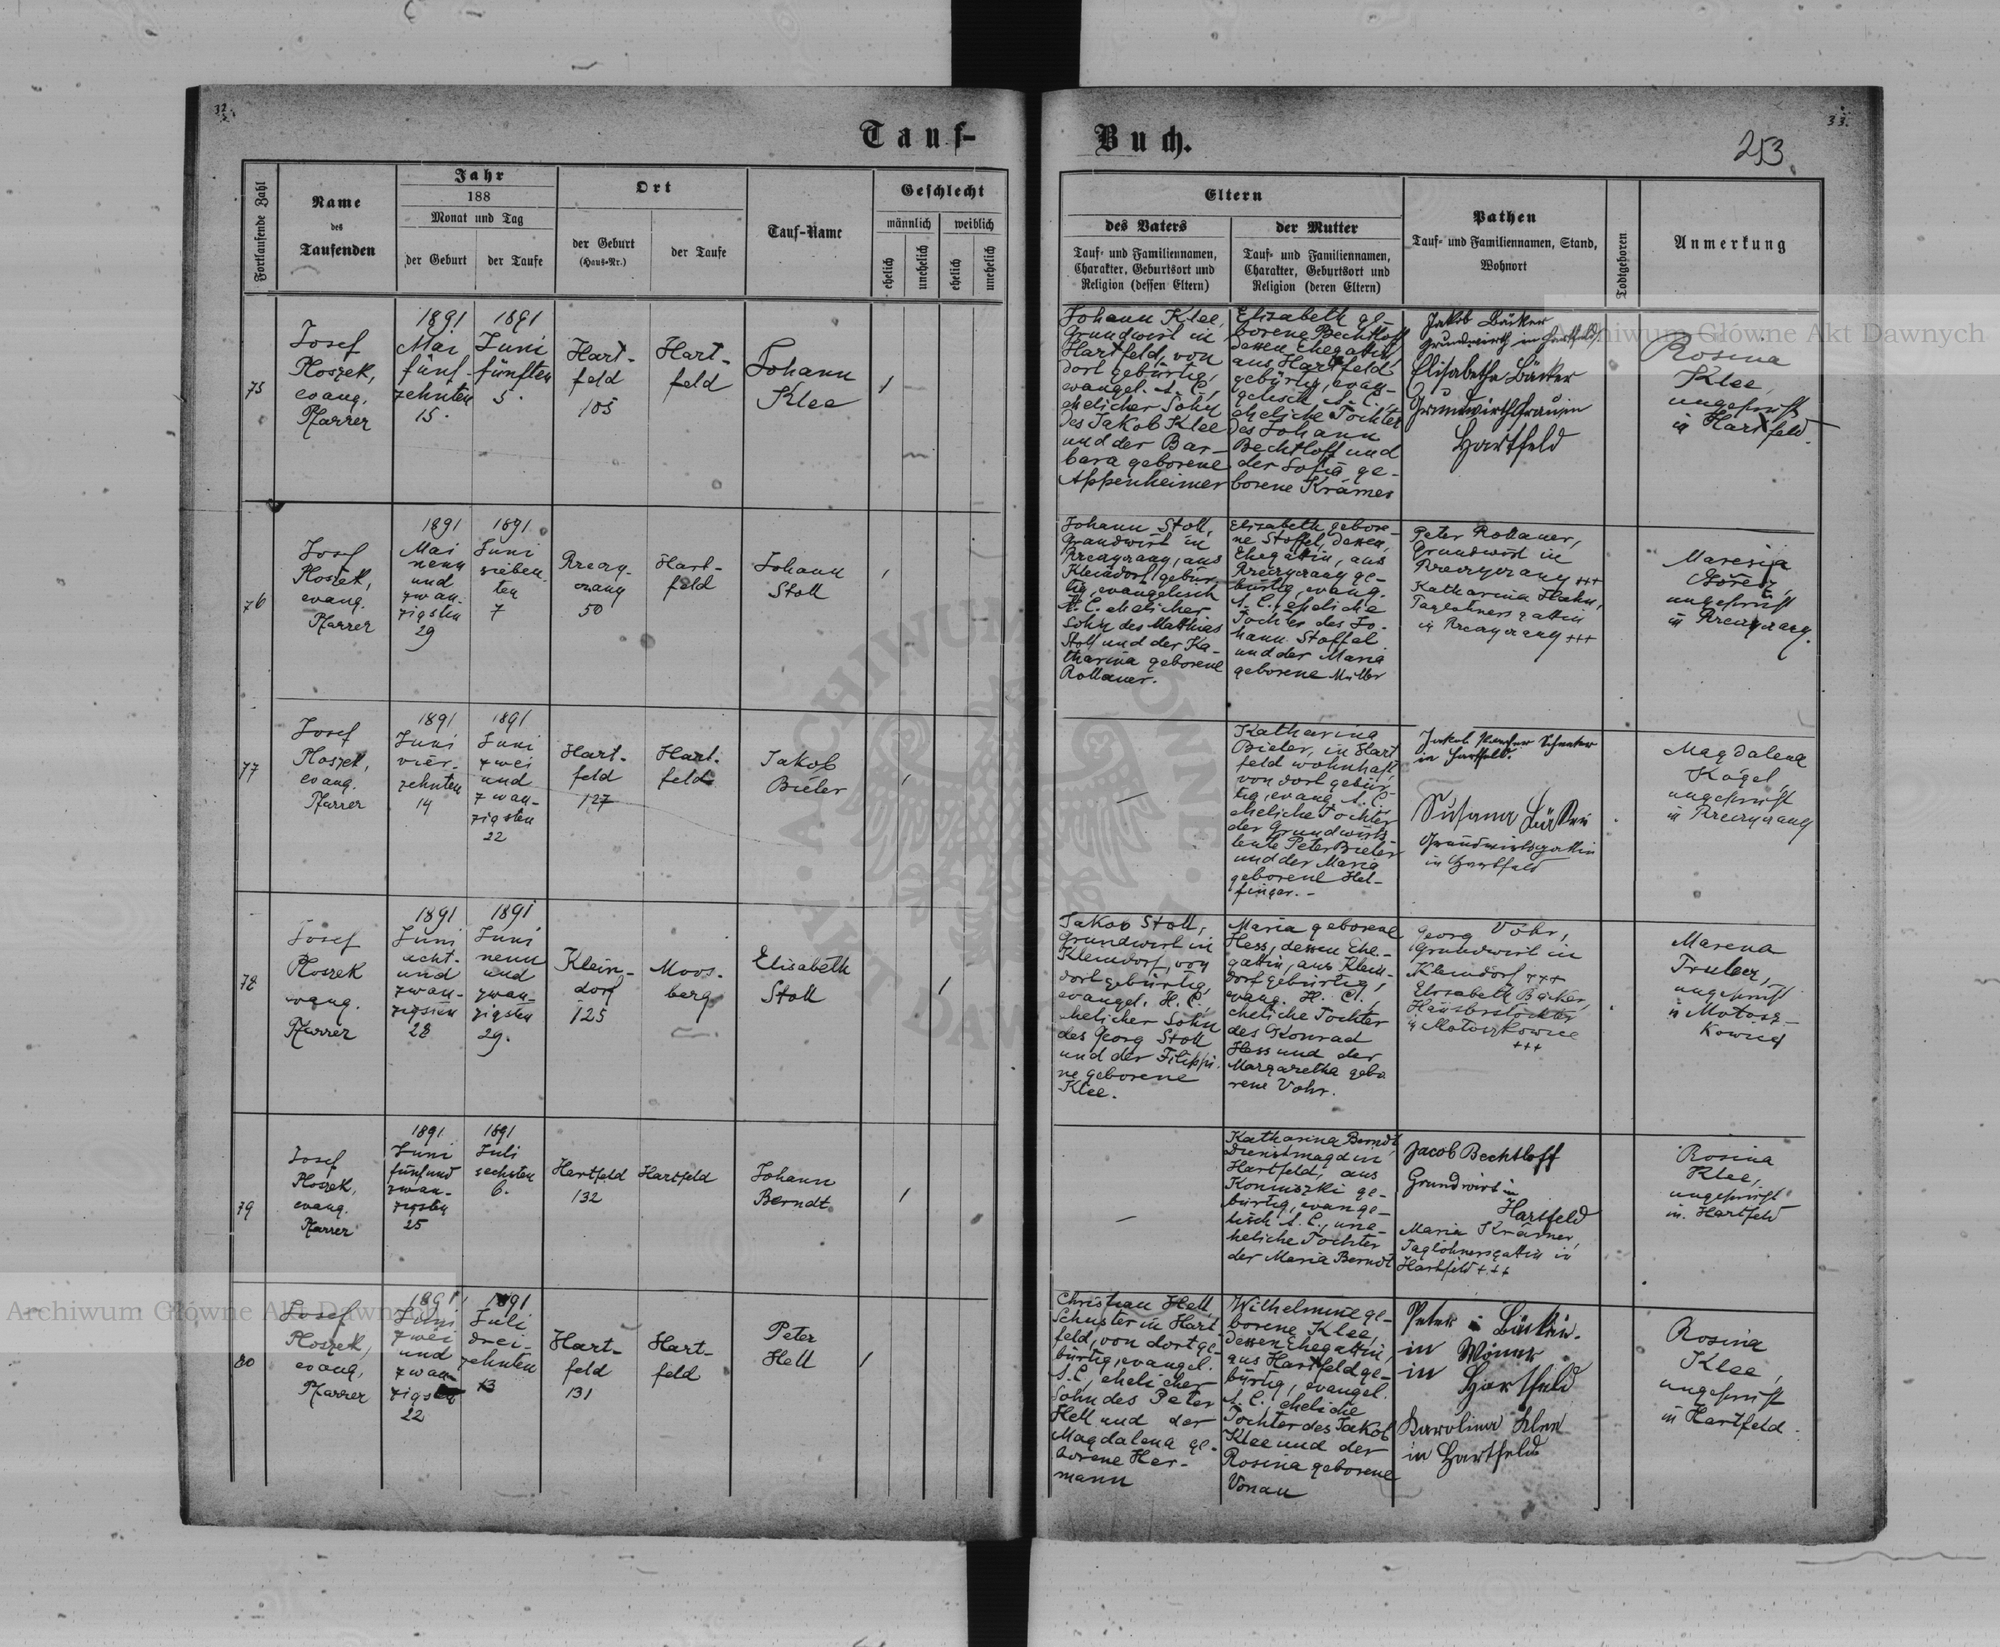 32.
33.
Tauf-
Buch.
253
Fortlaufende Zahl
Name
des
Taufenden
Jahr
188
Monat und Tag
der Geburt
der Taufe
Ort
der Geburt
(Haus-Nr.)
der Taufe
Tauf-Name
Geschlecht
männlich
weiblich
ehelich
unehelich
ehelich
unehelich
Eltern
des Vaters
Tauf- und Familiennamen,
Charakter, Geburtsort und
Religion (dessen Eltern)
der Mutter
Tauf- und Familiennamen,
Charakter, Geburtsort und
Religion (deren Eltern)
Pathen
Tauf- und Familiennamen, Stand,
Wohnort
Todtgeboren
Anmerkung
75
Josef
Ploszek,
evang.
Pfarrer
1891
Mai
fünf-
zehnten
15.
1891
Juni
fünften
5.
Hart-
feld
105
Hart-
feld
Johann
Klee
1
Johann Klee,
Grundwirt in
Hartfeld, von
dort gebürtig,
evangel. A. C.,
ehelicher Sohn
des Jakob Klee
und der Bar-
bara geborene
Appenheimer
Elisabeth ge-
borene Bechtloff
dessen Ehegattin,
aus Hartfeld
gebürtig, evan-
gelisch A. C.,
eheliche Tochter
des Johann
Bechtloff und
der Sofia ge-
borene Krämer
Jakob Bäcker
Grundwirth in Hartfeld
Elisabetha Bäcker
Hartfeld
Rosina
Klee,
ungeprüft
in Hartfeld.
76
Josef
Ploszek,
evang.
Pfarrer
1891
Mai
neun
und
zwan-
zigsten
29
1891
Juni
sieben-
ten
7
50
Hart-
feld
Johann
Stoll
1
Johann Stoll,
Grundwirt in
aus
Kleindorf gebür-
tig, evangelisch
A. C. ehelicher
Sohn des Matthias
Stoll und der Ka-
tharina geborene
Rollauer.
Elisabeth gebore-
ne Stoffel, dessen
Ehegattin, aus
ge-
bürtig, evang.
A. C., eheliche
Tochter des Jo-
hann Stoffel
und der Maria
geborene Müller
Peter Rollauer,
Grundwirt in
+++
Katharina Hahn,
Taglöhnersgattin
in +++
ungeprüft
in
77
Josef
Ploszek,
evang.
Pfarrer
1891
Juni
vier-
zehnten
14
1891
Juni
zwei
und
zwan-
zigsten
22
Hart-
feld
127
Hart-
feld
Jakob
Bieler
1
—
Katharina
Bieler, in Hart
feld wohnhaft
von dort gebür-
tig, evang. A. C.
eheliche Tochter
der Grundwirts-
leute Peter Bieler
und der Maria
geborene Hel-
finger. -
Jakob
in Hartfeld.
Susana
Grundwirtsgattin
in Hartfeld
Magdalena
Kogel,
ungeprüft
in
78
Josef
Ploszek
evang.
Pfarrer
1891
Juni
acht-
und
zwan-
zigsten
28
1891
Juni
neun
und
zwan-
zigsten
29.
Klein-
dorf
125
Moos-
berg
Elisabeth
Stoll
1
Jakob Stoll,
Grundwirt in
Kleindorf, von
dort gebürtig,
evangel. H. C.
ehelicher Sohn
des Georg Stoll
und der Filippi-
ne geborene
Klee.
Maria geborene
Hess, dessen Ehe-
gattin, aus Klein-
dorf gebürtig,
evang. H. C.,
eheliche Tochter
des Konrad
Hess und der
Margaretha gebo
rene Vohr.
Georg Vohr,
Grundwirt in
Kleindorf +++
Elisabeth Bäcker,
in Motoszkowice
+++
Marena
ungeprüft
in Motosz-
kowice
79
Josef
Ploszek,
evang.
Pfarrer
1891
Juni
fünf und
zwan-
zigsten
25
1891
Juli
sechsten
6.
Hartfeld
132
Hartfeld
Johann
Berndt
1
—
Katharina Berndt
Dienstmagd in
Hartfeld, aus
Koniuszki ge-
bürtig, evange-
lisch A. C., une-
heliche Tochter
der Maria Berndt
Jacob Bechtloff
Grundwirt in
Hartfeld
Maria Krämer,
Taglöhnersgattin in
Hartfeld +++
Rosina
Klee,
ungeprüft
in Hartfeld
80
Josef
Ploszek,
evang.
Pfarrer
1891
Juni
zwei
und
zwan-
zigsten
22
1891
Juli
drei-
zehnten
13
Hart-
feld
131
Hart-
feld
Peter
Hell
1
Christian Hell,
Schuster in Hart-
feld, von dort ge-
bürtig, evangel.
A. C., ehelicher
Sohn des Peter
Hell und der
Magdalena ge-
borene Her-
mann
Wilhelmine ge-
borene Klee,
dessen Ehegattin,
aus Hartfeld ge-
bürtig, evangel.
A. C., eheliche
Tochter des Jakob
Klee und der
Rosina geborene
Vonau
Peter
in
in Hartfeld
Karolina Klee
in Hartfeld
Rosina
Klee,
ungeprüft
in Hartfeld.
Archiwum Główne Akt Dawnych
Archiwum Główne Akt Dawnych